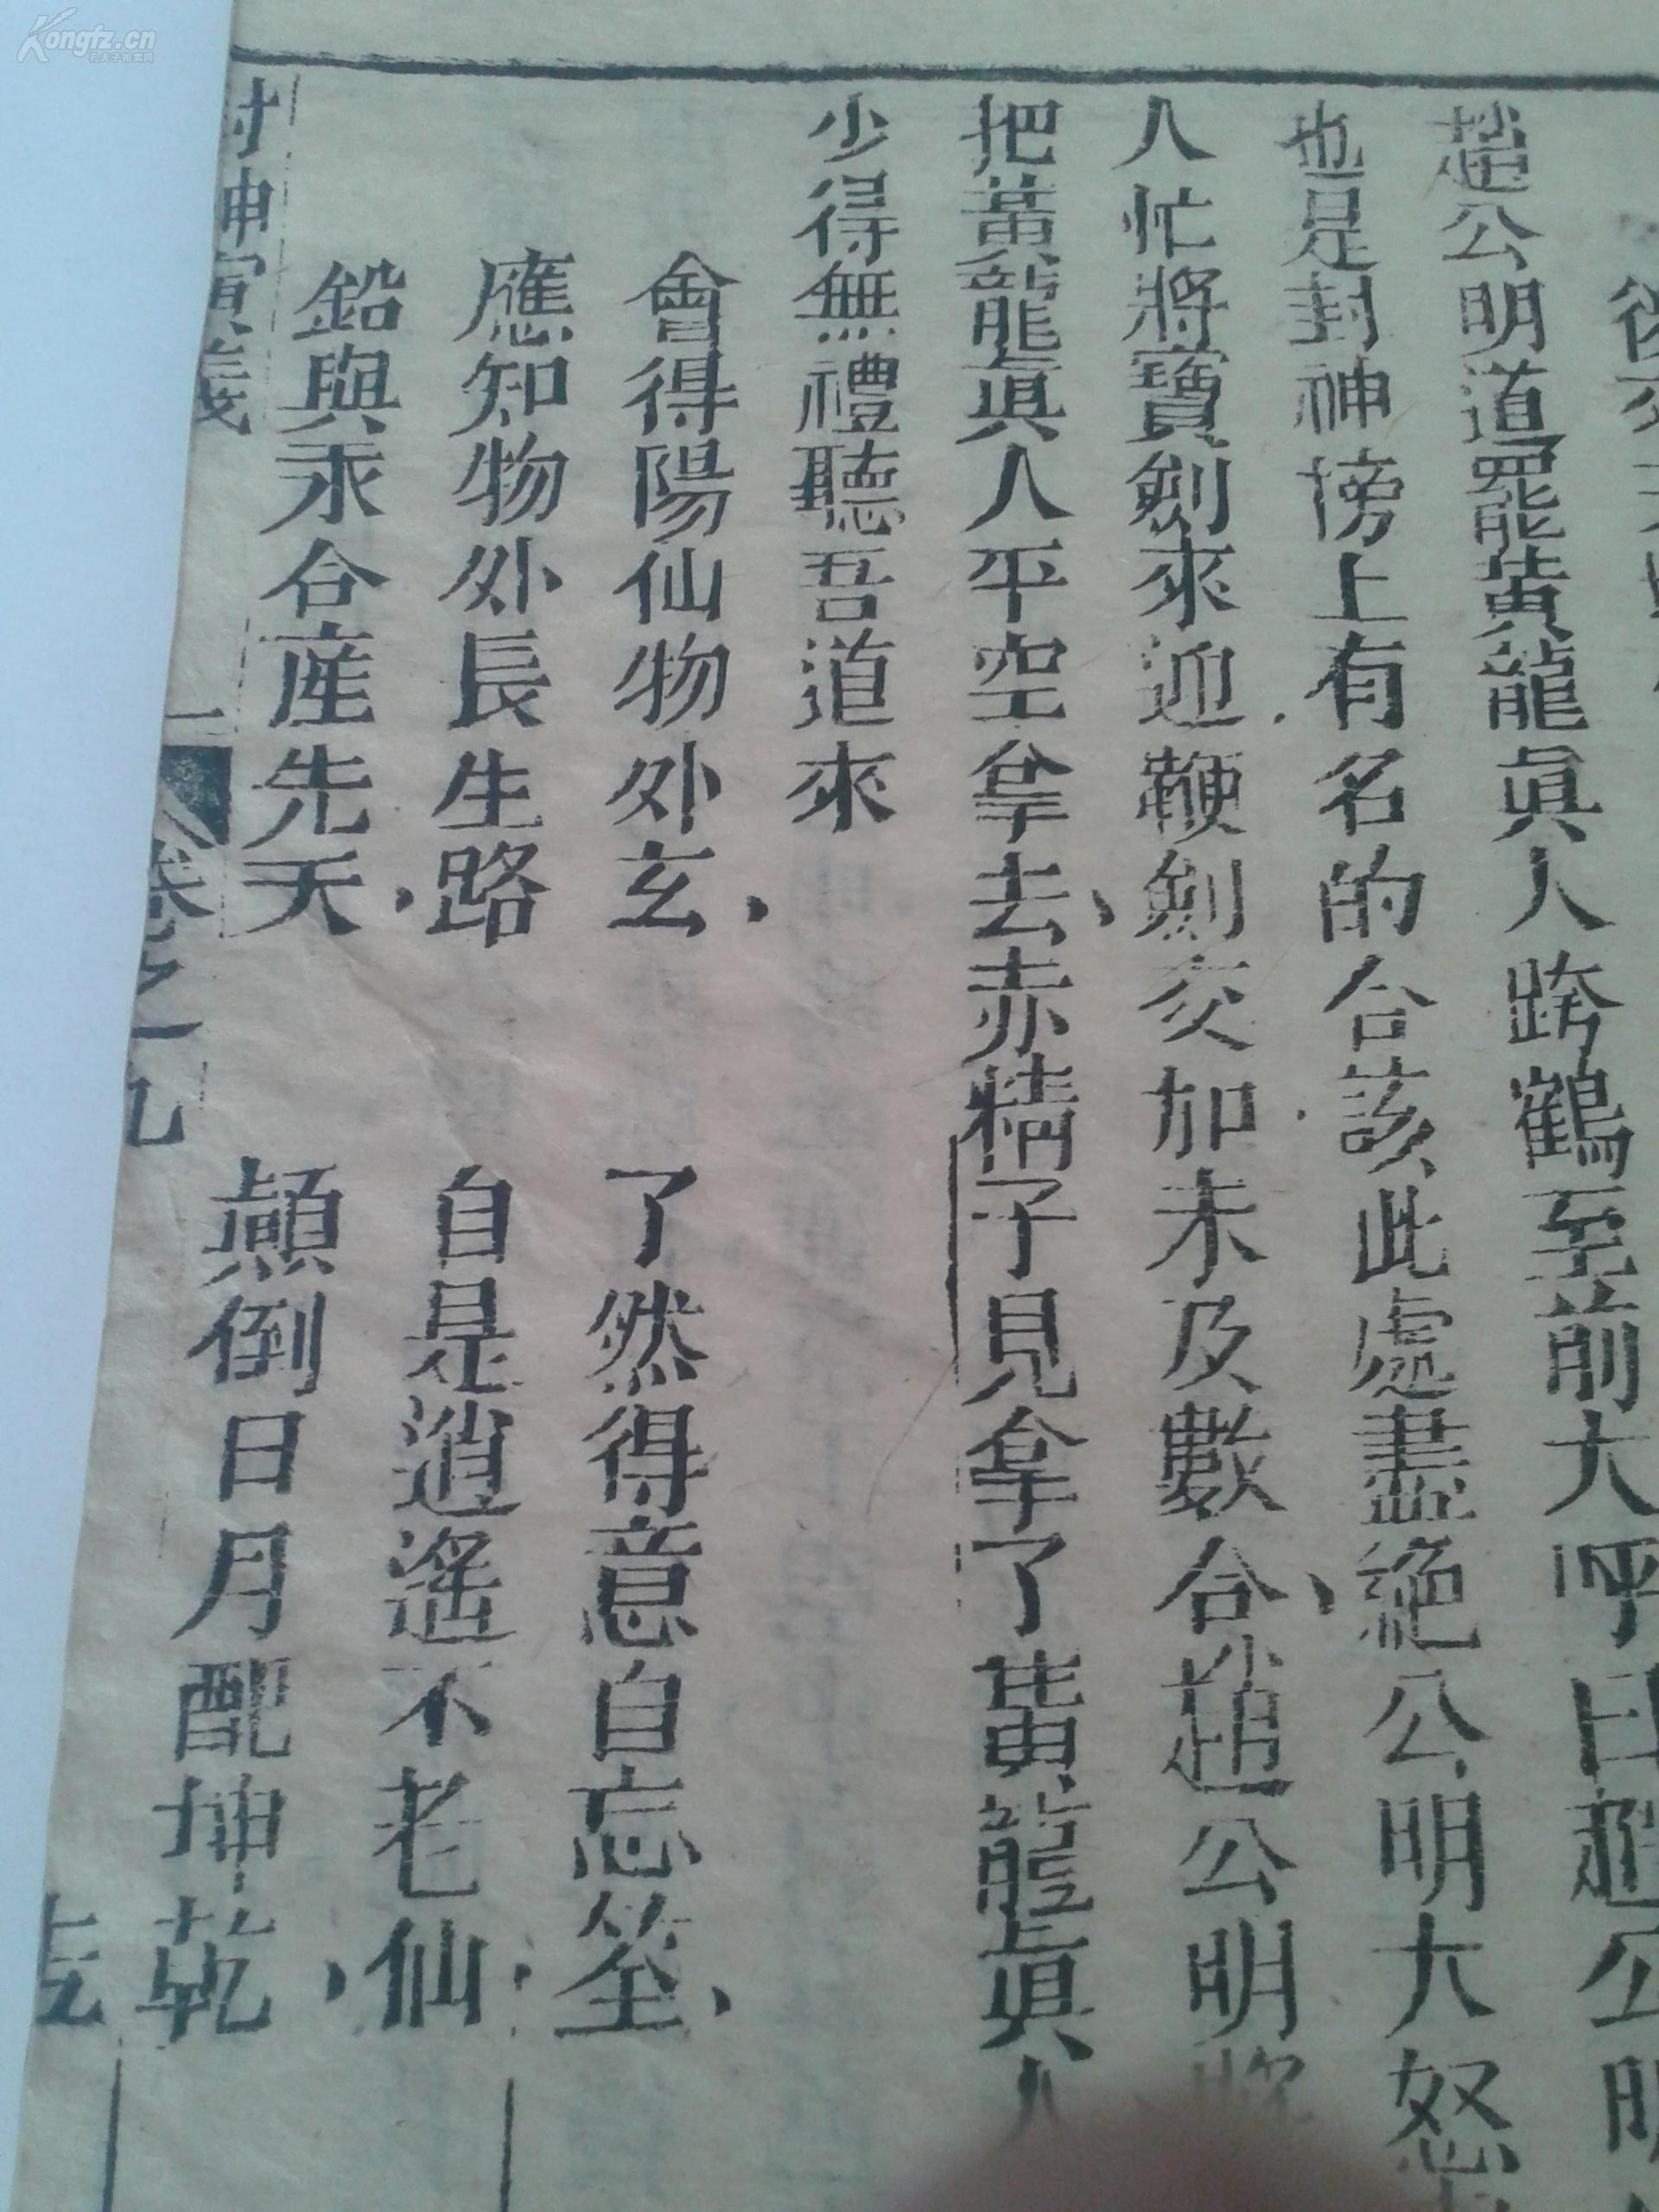 趙公明道罷黃龍眞人跨鶴至前大呼曰趙公明
也是封神榜上有名的合該此處盡絕公明大怒
人忙將寶劍來迎鞭劍交加未及數合趙公明將
把黃龍眞人平空拿去赤精子見拿了黃龍眞人
少得無禮聽吾道來
會得陽仙物外玄 了然得意自忘筌
應知物外長生路 自是逍遙不老仙
鉛與汞合産先天 顛倒日月配坤乾
封神演義 卷之九
Kongfz.cn